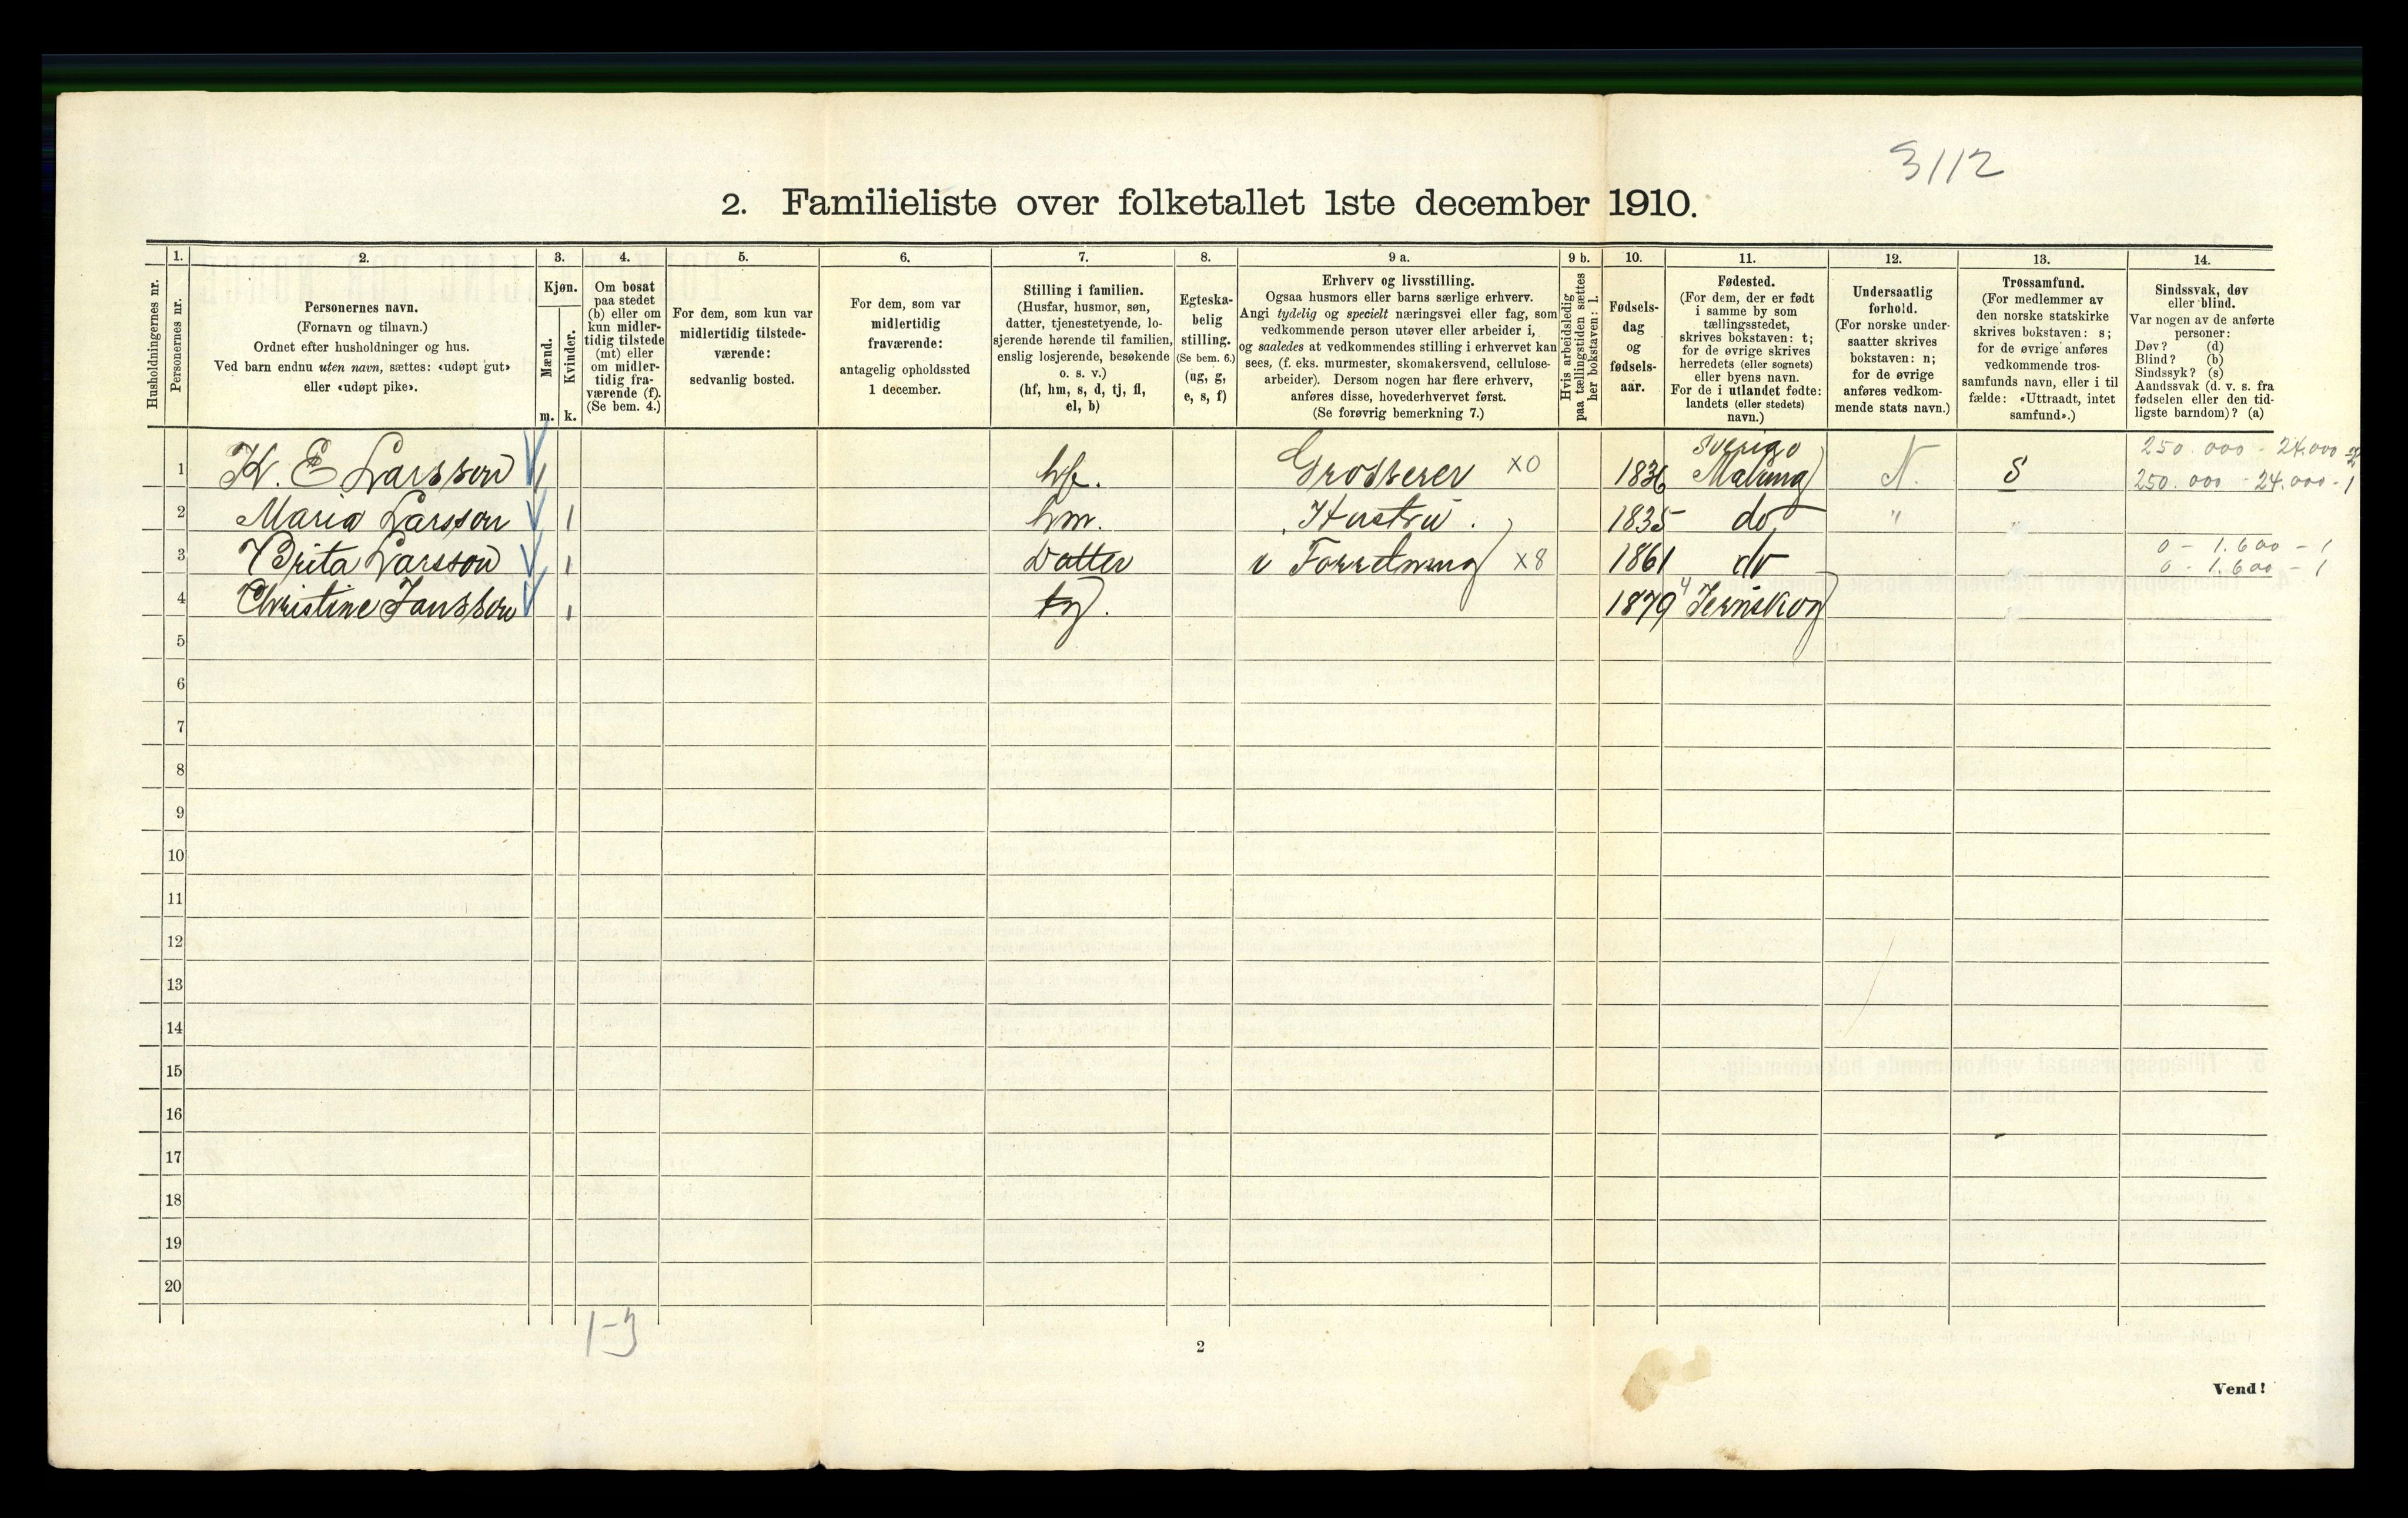 3112
2. Familieliste over folketallet 1ste december 1910.
Husholdningernes nr.
1.
Personernes nr.
2.
Personernes navn.
(Fornavn og tilnavn.)
Ordnet efter husholdninger og hus.
Ved barn endnu uten navn, sættes: «udøpt gut»
eller «udøpt pike».
3.
Kjøn.
Mænd.
m.
Kvinder.
k.
4.
Om bosat
paa stedet
(b) eller om
kun midler-
tidig tilstede
(mt) eller
om midler-
tidig fra-
værende (f).
(Se bem. 4.)
5.
For dem, som kun var
midlertidig tilstede-
værende:
sedvanlig bosted.
6.
For dem, som var
midlertidig
fraværende:
antagelig opholdssted
1 december.
7.
Stilling i familien.
(Husfar, husmor, søn,
datter, tjenestetyende, lo-
sjerende hørende til familien,
enslig losjerende, besøkende
o. s. v.)
(hf, hm, s, d, tj, fl,
el, b)
8.
Egteska-
belig
stilling.
(Se bem. 6.)
(ug, g,
e, s, f)
9 a.
Erhverv og livsstilling.
Ogsaa husmors eller barns særlige erhverv.
Angi tydelig og specielt næringsvei eller fag, som
vedkommende person utøver eller arbeider i,
og saaledes at vedkommendes stilling i erhvervet kan
sees, (f. eks. murmester, skomakersvend, cellulose-
arbeider). Dersom nogen har flere erhverv,
anføres disse, hovederhvervet først.
(Se forøvrig bemerkning 7.)
9 b.
Hvis arbeidsledig
paa tællingstiden sættes
her bokstaven: l.
10.
Fødsels-
dag
og
fødsels-
aar.
11.
Fødested.
(For dem, der er født
i samme by som
tællingsstedet,
skrives bokstaven: t;
for de øvrige skrives
herredets (eller sognets)
eller byens navn.
For de i utlandet fødte:
landets (eller stedets)
navn.)
12.
Undersaatlig
forhold.
(For norske under-
saatter skrives
bokstaven: n;
for de øvrige
anføres vedkom-
mende stats navn.)
13.
Trossamfund.
(For medlemmer av
den norske statskirke
skrives bokstaven: s;
for de øvrige anføres
vedkommende tros-
samfunds navn, eller i til
fælde: «Uttraadt, intet
samfund».)
14.
Sindssvak, døv
eller blind.
Var nogen av de anførte
personer:
Døv? (d)
Blind? (b)
Sindssyk? (s)
Aandssvak (d. v. s. fra
fødselen eller den tid-
ligste barndom)? (a)
Sverige 250.000 - 24.000
1 K. E Larsson 1 hf. Grosserer X0 1836 Malung N. S 250.000 - 24.000 - 1
2 Maria Larsson 1 hm. Hustru. 1835 do " "
0 - 1.600 - 1
3 Brita Larsson 1 Datter i Forretning X8 1861 do 0 - 1.600 - 1
4 Christine Jansson 1 tj. 1879 4 Jernskog
5
6
7
8
9
10
11
12
13
14
15
16
17
18
19
20
1-3
2
Vend!